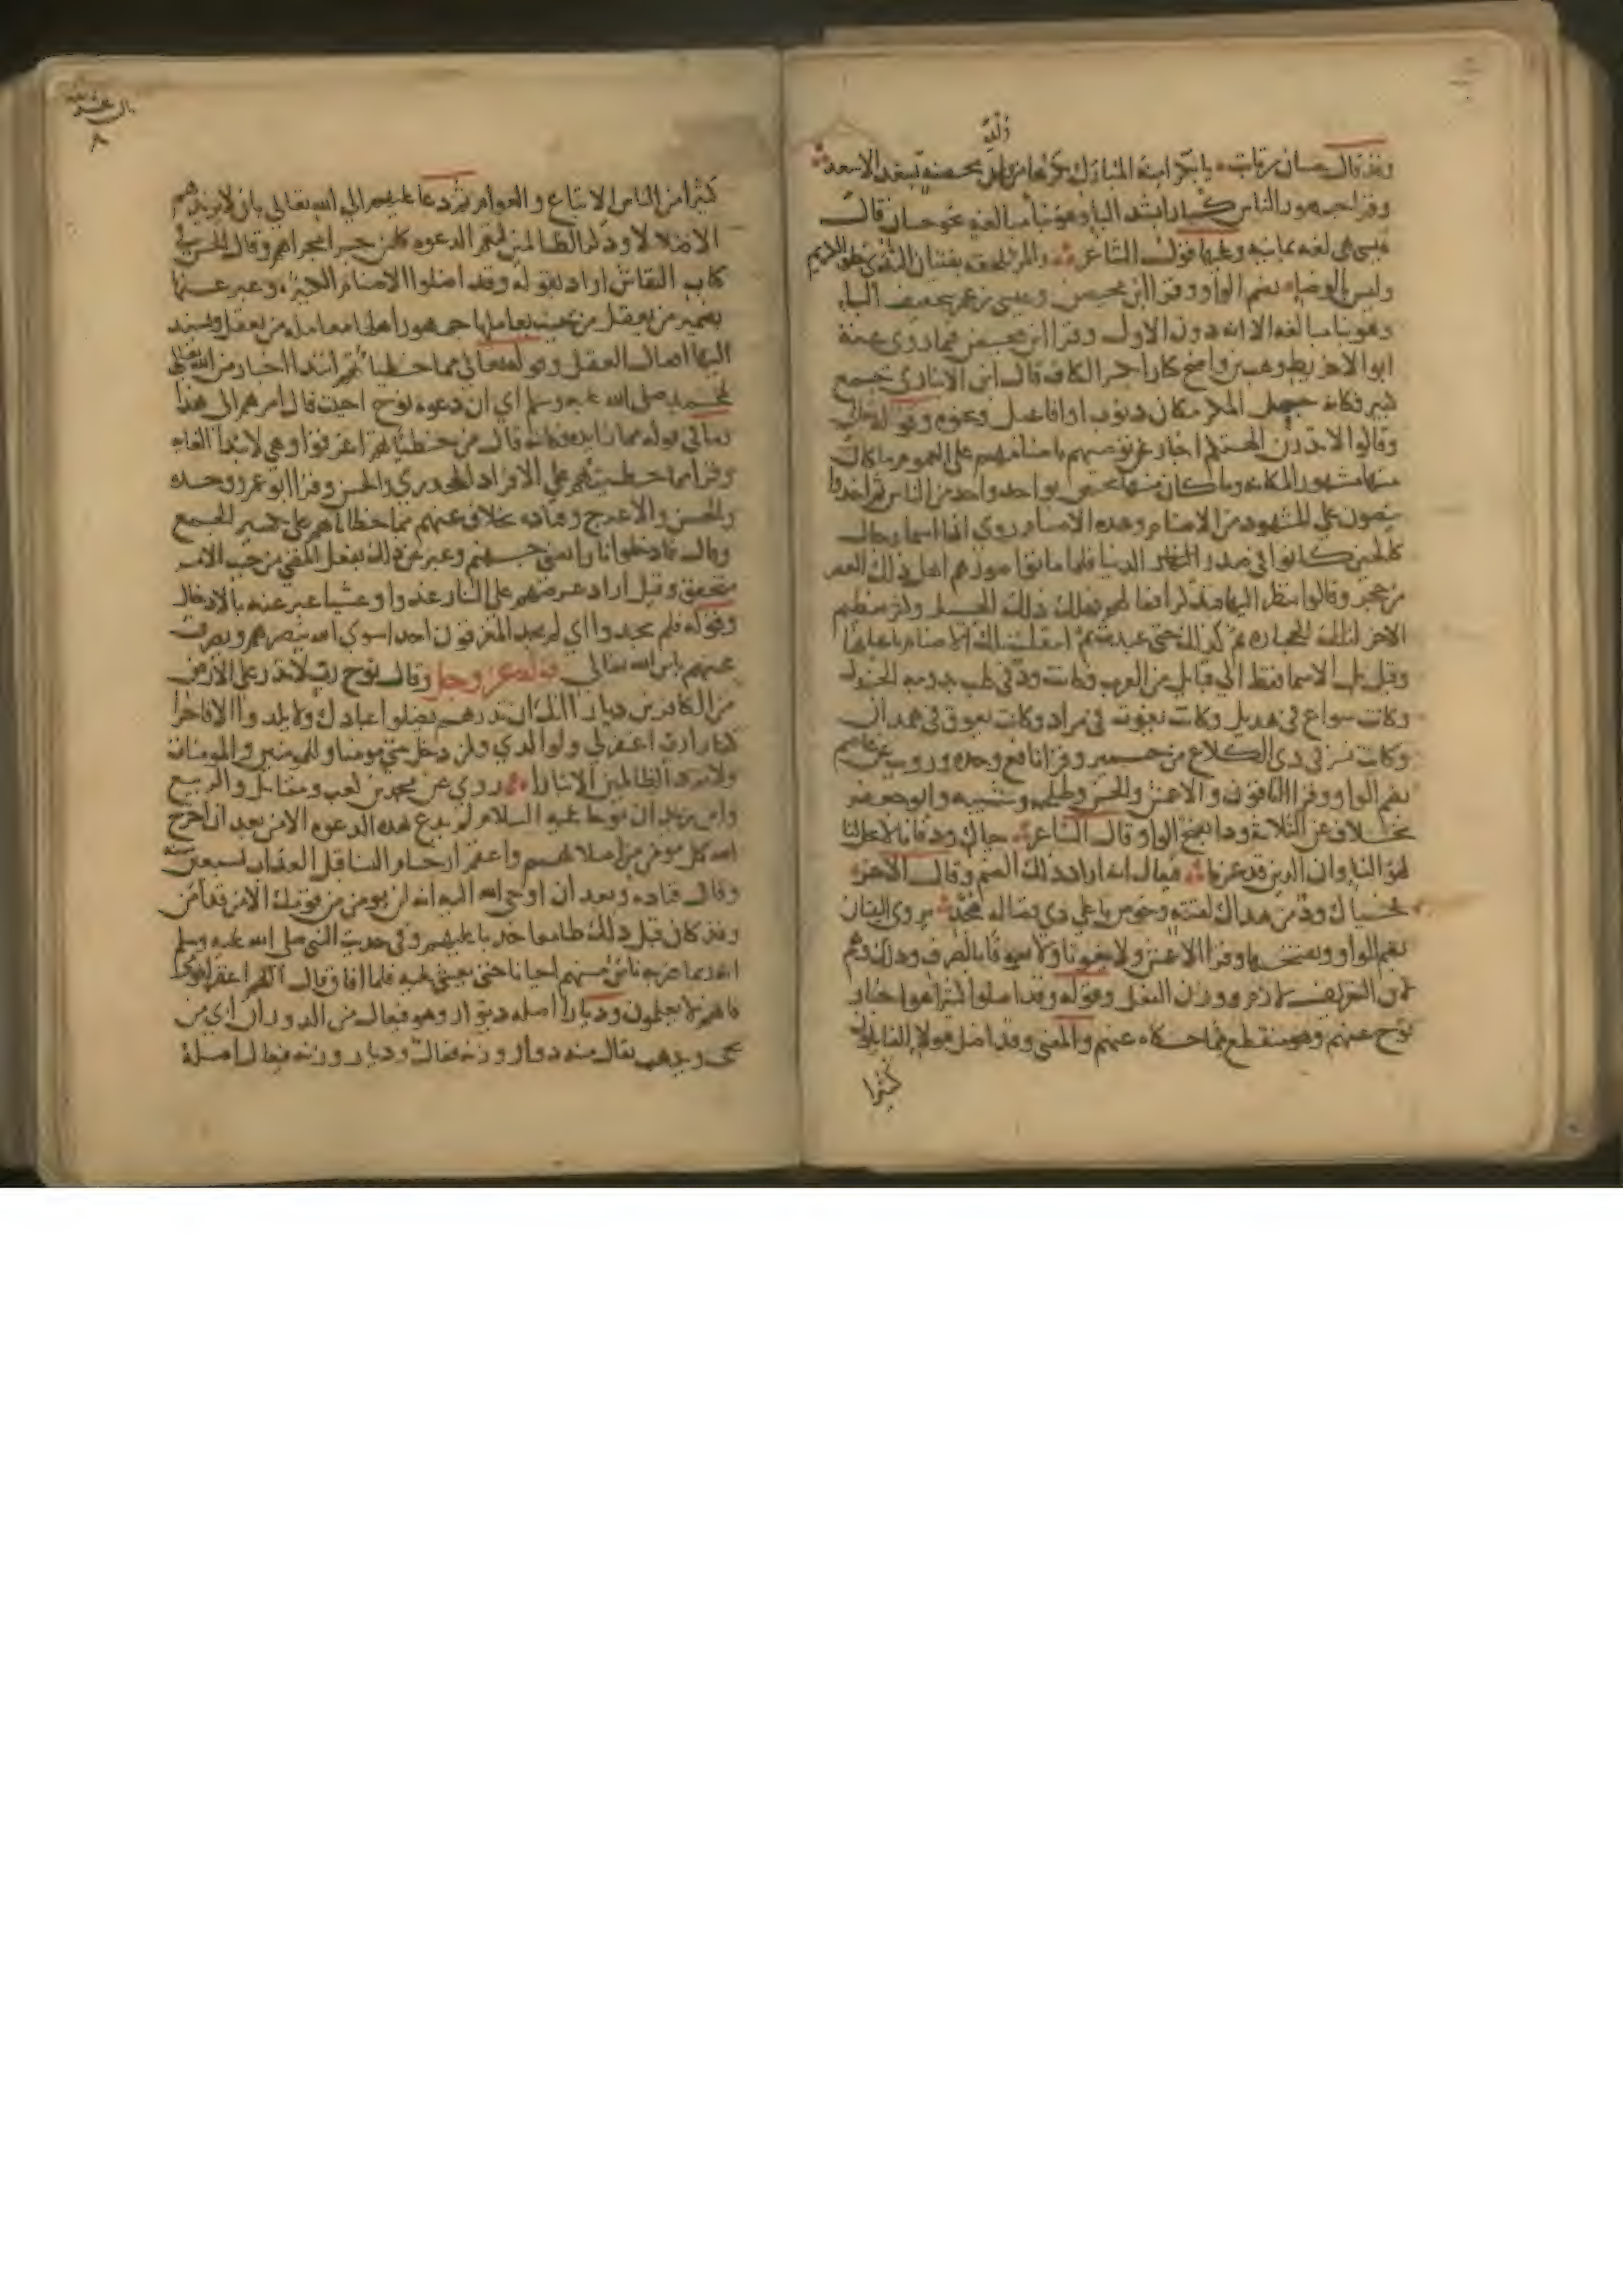 وقد قال حسان بن ثابت يا بكر آمنة المبارك بكرها من ولد محصنة بسعد الاسعد
وقرا جمهور الناس كبارا بشد الباء وهو بنا مبالغة نحو حسان قال
عيسى هي لغة يمانية وعليها قول الشاعر والمرء يلحقه بفتيان الندى خلق الكريم
وليس بالوضاء بضم الواو وقرا ابن محيصن وعيسى بن عمر بتخفيف الباء
وهو بنا مبالغة الا انه دون الاول وقرا ابن محيصن فيما روى عنه
ابو الاخريط وهب بن واضح كبارا بكسر الكاف قال ابن الانباري جمع
كبير فكانه جعل المكر مكان ذنوب او افاعيل ونحوه وقوله تعالى
وقالوا لا تذرن الهتكم اخبار عن توصيهم باصنامهم على العموم وما كان
منها مشهور المكانة وما كان منها يختص بواحد واحد من الناس ثم اخذوا
ينصون على المشهور من الاصنام وهذه الاصنام روي انها اسما رجال
صالحين كانوا في صدر الدنيا فلما ماتوا صورهم اهل ذلك العصر
من حجر وقالوا ننظر اليها فنذكر افعالهم فهلك ذلك الجيل وكثر تعظيم
الاخر لتلك الحجارة ثم كذلك حتى عبدت ثم انتقلت تلك الاصنام باعيانها
وقيل بل الاسما فقط الى قبايل من العرب فكانت ود في كلب بدومة الجندل
وكانت سواع في هذيل وكانت يغوث في مراد وكانت يعوق في همدان
وكانت نسر في ذي الكلاع من حمير وقرا نافع وحده ورويت عن عاصم
بضم الواو وقرا الباقون والاعمش والحسن وطلحة وشيبة وابو جعفر
بخلاف عن الثلاثة ودا بفتح الواو وقال الشاعر حياك ود فانا لا يحل لنا
لهو النسا وان الدين قد عزما فيقال انه اراد بذلك الصنم وقال الاخر
فحياك ود من هداك لفتية وخوص باعلى ذي فضالة هجد يروى البيتان
بضم الواو وبفتحها وقرا الاعمش ولا يغوثا ولا يعوقا بالصرف وذلك وهم
لان التعريف لازم ووزن الفعل وقوله وقد اضلوا كثيرا هو اخبار
نوح عنهم وهو منقطع مما حكاه عنهم والمعنى وقد اضل هولا القايلون
كثيرا
كثيرا من الناس الاتباع والعوام ثم دعا عليهم الى الله تعالى بان لا يزيدهم
الا ضلالا وذكر الظالمين لتعم الدعوة كل من جرى مجراهم وقال الحسن في
كتاب النقاش اراد بقوله وقد اضلوا الاصنام المذكورة وعبر عنها
بضمير من يعقل من حيث يعاملها جمهور اهلها معاملة من يعقل ويسند
اليها افعال العقل وقوله تعالى مما خطياتهم ابتدا اخبار من الله تعالى
لمحمد صلى الله عليه وسلم اي ان دعوة نوح اجيبت فال امرهم الى هذا
وما في قوله مما زايدة وكانه قال من خطياتهم اغرقوا وهي لابتدا الغاية
وقرا مما خطيتهم على الافراد الجحدري والحسن وقرا ابو عمرو وحده
والحسن والاعرج وقتادة بخلاف عنهم مما خطاياهم على تكسير الجمع
وقال فادخلوا نارا يعني جهنم وعبر عن ذلك بفعل المضي من حيث الامر
متحقق وقيل اراد عرضهم على النار غدوا وعشيا عبر عنه بالادخال
وقوله فلم يجدوا اي لم يجد المغرقون احدا سوى الله ينصرهم ويصرف
عنهم باس الله تعالى قوله عز وجل وقال نوح رب لا تذر على الارض
من الكافرين ديارا انك ان تذرهم يضلوا عبادك ولا يلدوا الا فاجرا
كفارا رب اغفر لي ولوالدي ولمن دخل بيتي مومنا وللمومنين والمومنات
ولا تزد الظالمين الا تبارا روي عن محمد بن كعب ومقاتل والربيع
وابن زيد ان نوحا عليه السلام لم يدع بهذه الدعوة الا من بعد ان اخرج
الله كل مومن من اصلابهم واعقم ارحام النسا قبل العذاب لسبعين سنة
وقال قتادة وبعد ان اوحى الله اليه انه لن يومن من قومك الا من قد امن
وقد كان قبل ذلك طامعا حدبا عليهم وفي حديث النبي صلى الله عليه وسلم
انه ربما ضربه ناس منهم احيانا حتى يغشى عليه فلما افاق قال اللهم اغفر لقومي
فانهم لا يعلمون وديارا اصله ديوار وهو فيعال من الدوران اي من
يجي ويذهب يقال منه دوار وزنه فعال وديار وزنه فيعال اصله